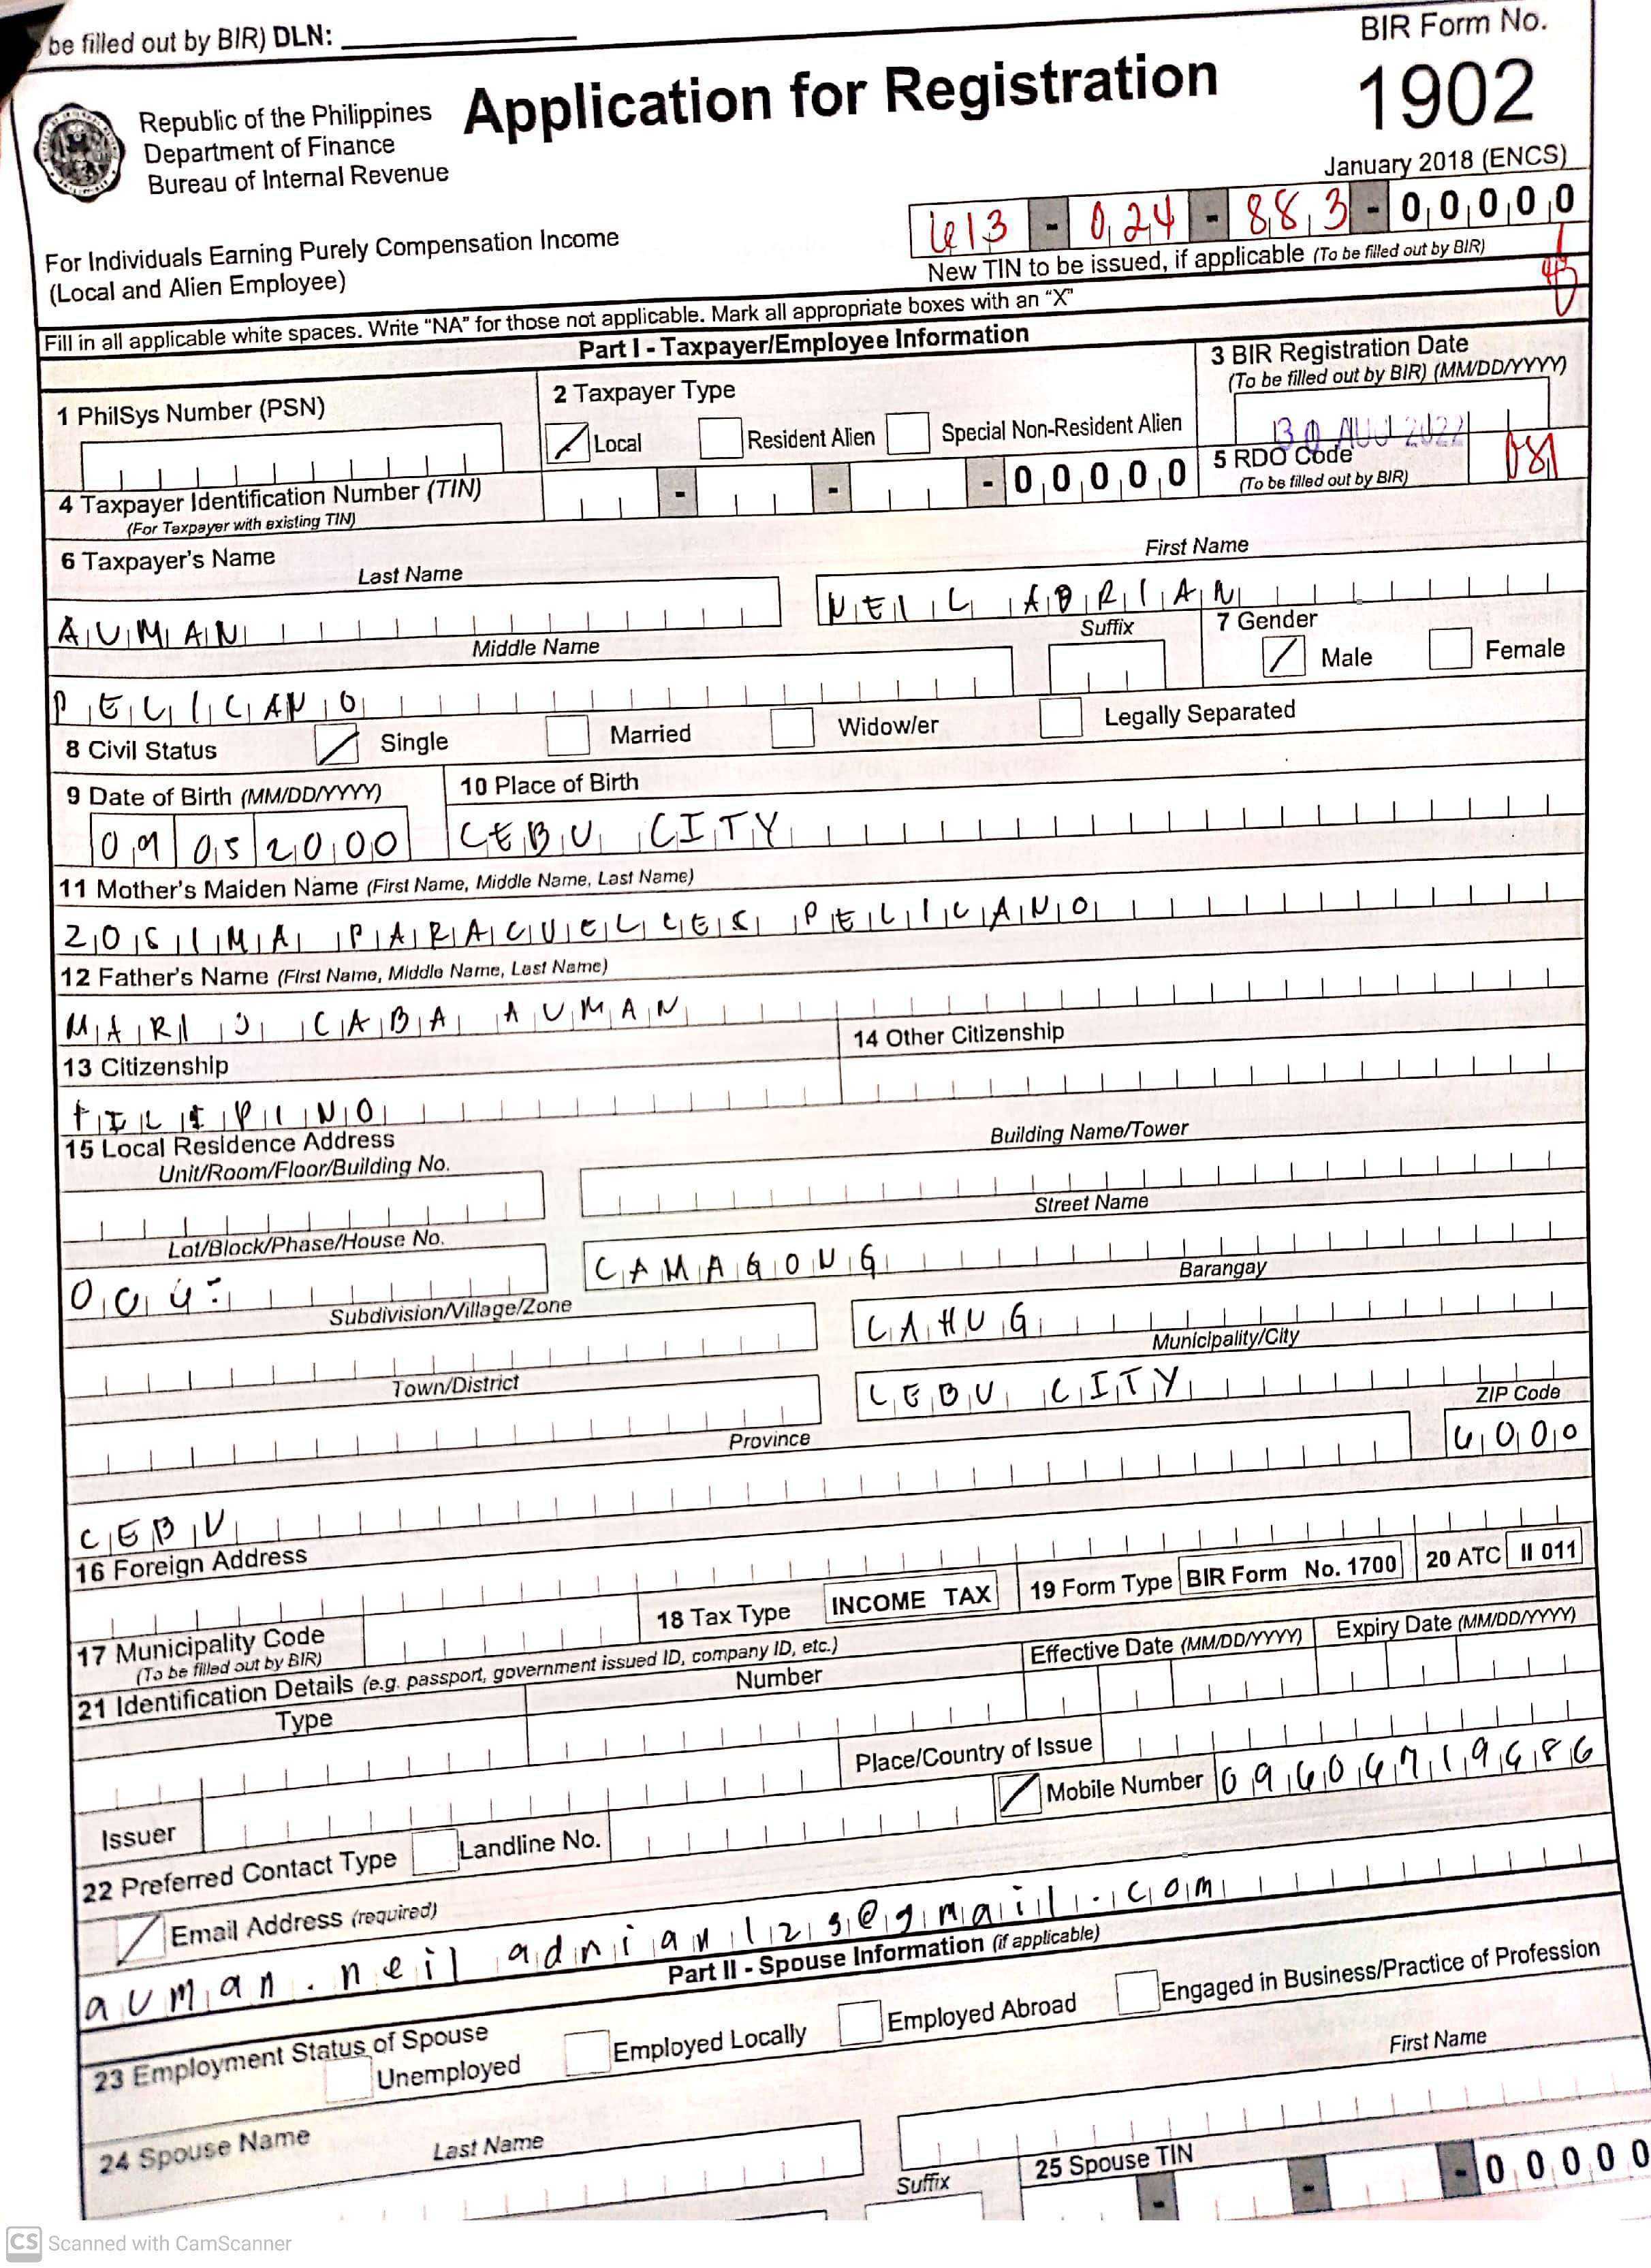 be filled out by BIR) DLN:
BIR Form No.
1902
January 2018 (ENCS)
Republic of the Philippines
Department of Finance
Bureau of Internal Revenue
Application for Registration
For Individuals Earning Purely Compensation Income
(Local and Alien Employee)
613 - 024 - 883 - 00000
New TIN to be issued, if applicable (To be filled out by BIR)
Fill in all applicable white spaces. Write "NA" for those not applicable. Mark all appropriate boxes with an "X"
Part I - Taxpayer/Employee Information
1 PhilSys Number (PSN)
2 Taxpayer Type
Local
Resident Alien
Special Non-Resident Alien
3 BIR Registration Date
(To be filled out by BIR) (MM/DD/YYYY)
30 AUG 2022
4 Taxpayer Identification Number (TIN)
(For Taxpayer with existing TIN)
- - - 00000
5 RDO Code
(To be filled out by BIR)
081
6 Taxpayer's Name
Last Name
First Name
AUMAN
NEIL ADRIAN
Middle Name
Suffix
7 Gender
Male
Female
PELICANO
8 Civil Status
Single
Married
Widow/er
Legally Separated
9 Date of Birth (MM/DD/YYYY)
10 Place of Birth
09 05 2000
CEBU CITY
11 Mother's Maiden Name (First Name, Middle Name, Last Name)
ZOSIMA PARACUELLES PELICANO
12 Father's Name (First Name, Middle Name, Last Name)
MARIO CABA AUMAN
13 Citizenship
14 Other Citizenship
FILIPINO
15 Local Residence Address
Unit/Room/Floor/Building No.
Building Name/Tower
Lot/Block/Phase/House No.
Street Name
CAMAGONG
Subdivision/Village/Zone
Barangay
LAHUG
Town/District
Municipality/City
CEBU CITY
Province
ZIP Code
6000
CEBU
16 Foreign Address
17 Municipality Code
(To be filled out by BIR)
18 Tax Type
INCOME TAX
19 Form Type
BIR Form No. 1700
20 ATC
II 011
21 Identification Details (e.g. passport, government issued ID, company ID, etc.)
Type
Number
Effective Date (MM/DD/YYYY)
Expiry Date (MM/DD/YYYY)
Issuer
Place/Country of Issue
22 Preferred Contact Type
Landline No.
Mobile Number
Email Address (required)
Part II - Spouse Information (if applicable)
23 Employment Status of Spouse
Unemployed
Employed Locally
Employed Abroad
Engaged in Business/Practice of Profession
24 Spouse Name
Last Name
First Name
Suffix
25 Spouse TIN
- - - 00000
CS Scanned with CamScanner